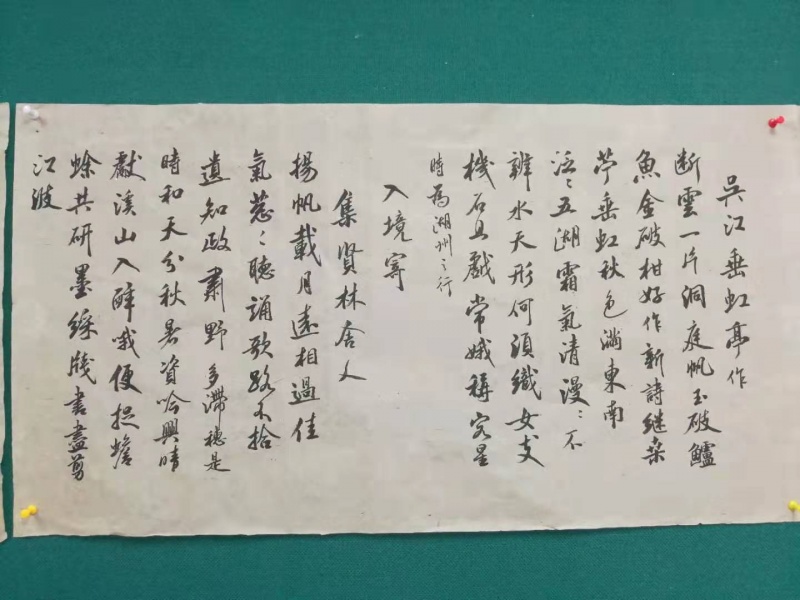 吳江垂虹亭作
断雲一片洞庭帆玉破鱸
魚金破柑好作新詩継桑
苧垂虹秋色滿東南
泛〻五湖霜氣清漫〻不
辨水天形何須織女支
機石且戲常娥稱客星
時為湖州之行
入境寄
集賢林舍人
揚帆載月遠相過佳
氣蔥〻聴誦歌路不拾
遺知政肅野多滯穂是
時和天分秋暑資吟興晴
獻溪山入醉哦便捉蟾
蜍共研墨綵牋書盡剪
江波